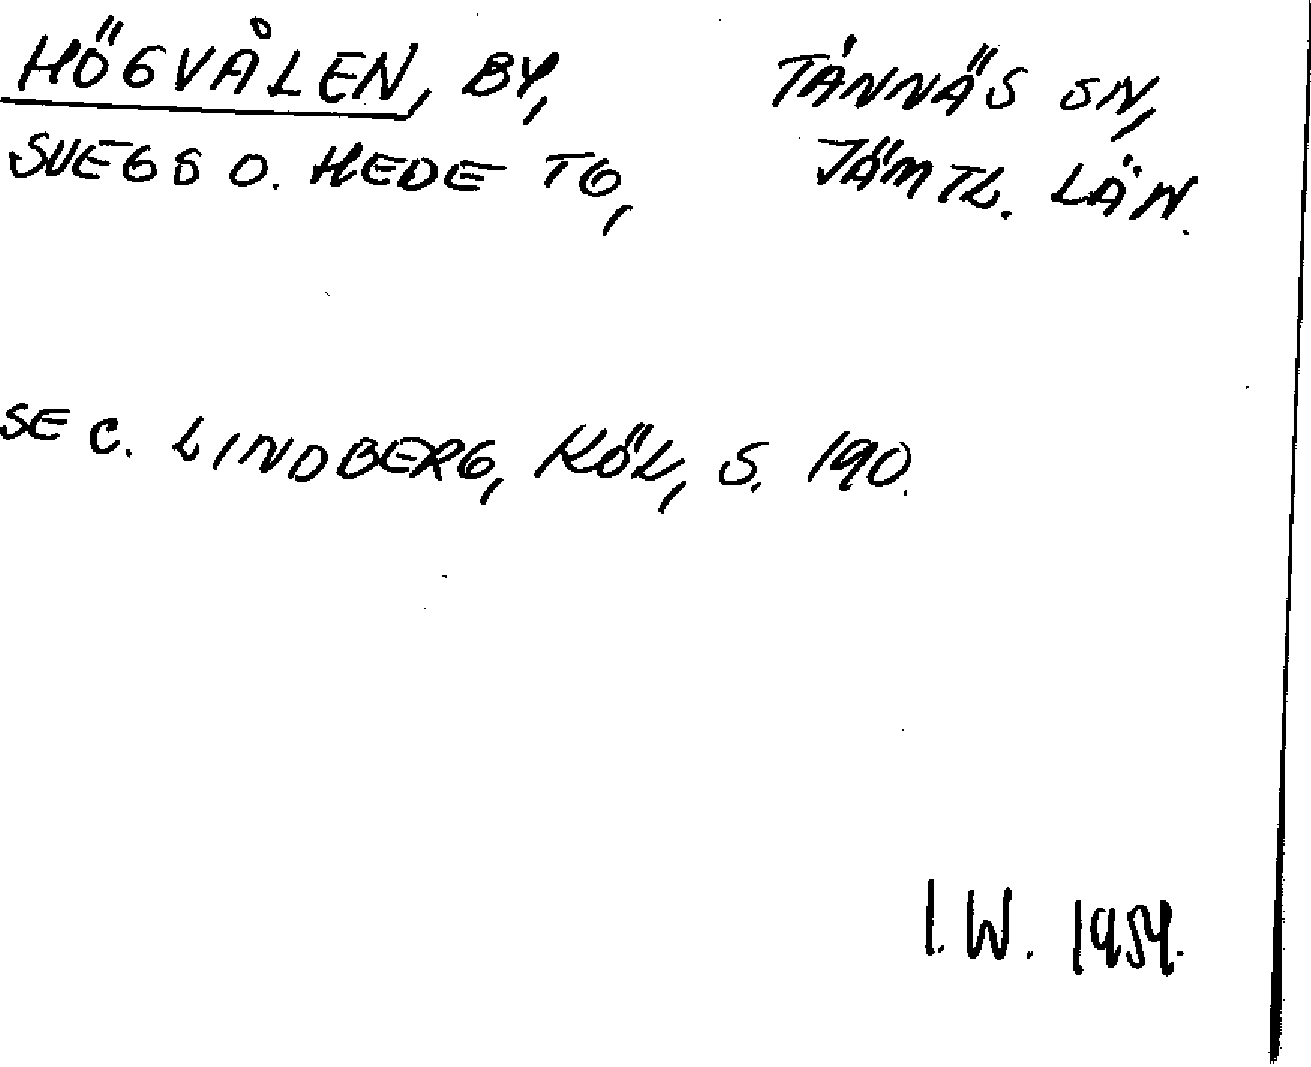 HÖGVÅLEN, BY, TÄNNÄS SN,
SVEGS O. HEDE TG, JÄMTL. LÄN.
SE C. LINDBERG, KÖL, S. 190.
I. W. 1954.